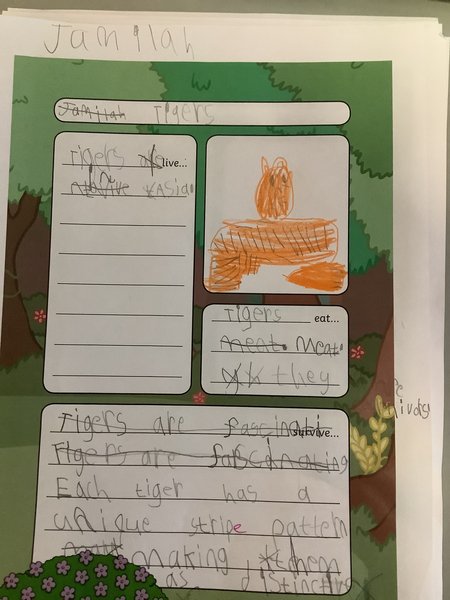 Jamilah
Jamilah Tigers
Tigers live...
Asia
Tigers eat...
meat. Meat.
they
Tigers are survive...
Tigers are fascinating
Each tiger has a
unique stripe pattern
making, them
as distinctive